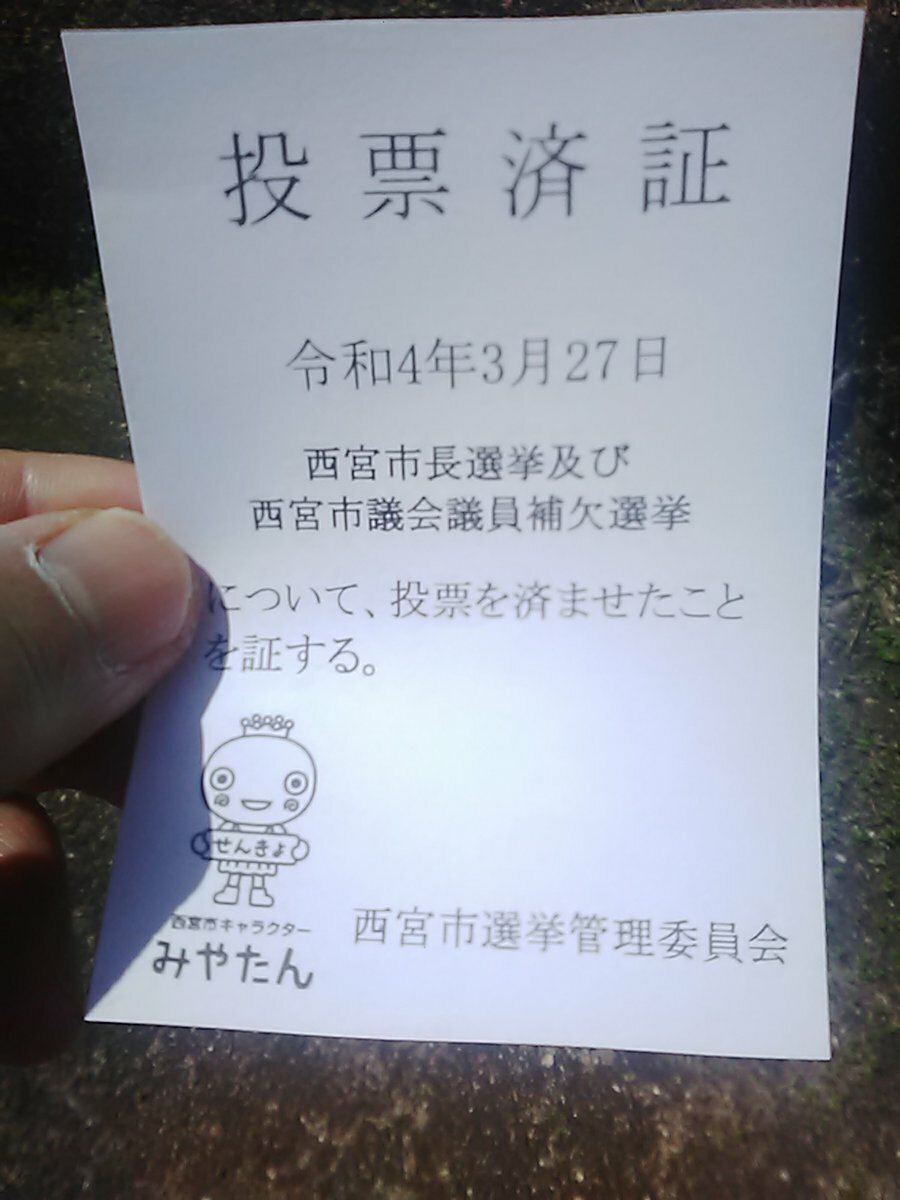 投票済証
令和4年3月27日
西宮市長選挙及び
西宮市議会議員補欠選挙
について、投票を済ませたこと
を証する。
せんきょ
西宮市キャラクター
みやたん
西宮市選挙管理委員会